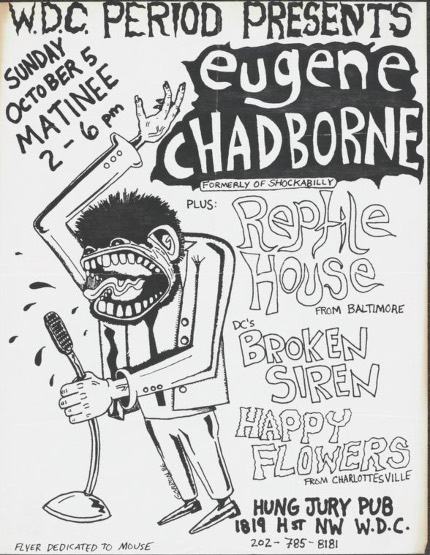 W.D.C. PERIOD PRESENTS
SUNDAY
OCTOBER 5
MATINEE
2-6 pm
eugene
CHADBORNE
FORMERLY OF SHOCKABILLY
PLUS:
Reptile
House
FROM BALTIMORE
DC's
BROKEN
SIREN
HAPPY
FLOWERS
FROM CHARLOTTESVILLE
HUNG JURY PUB
1819 H ST NW W.D.C.
202-785-8181
FLYER DEDICATED TO MOUSE